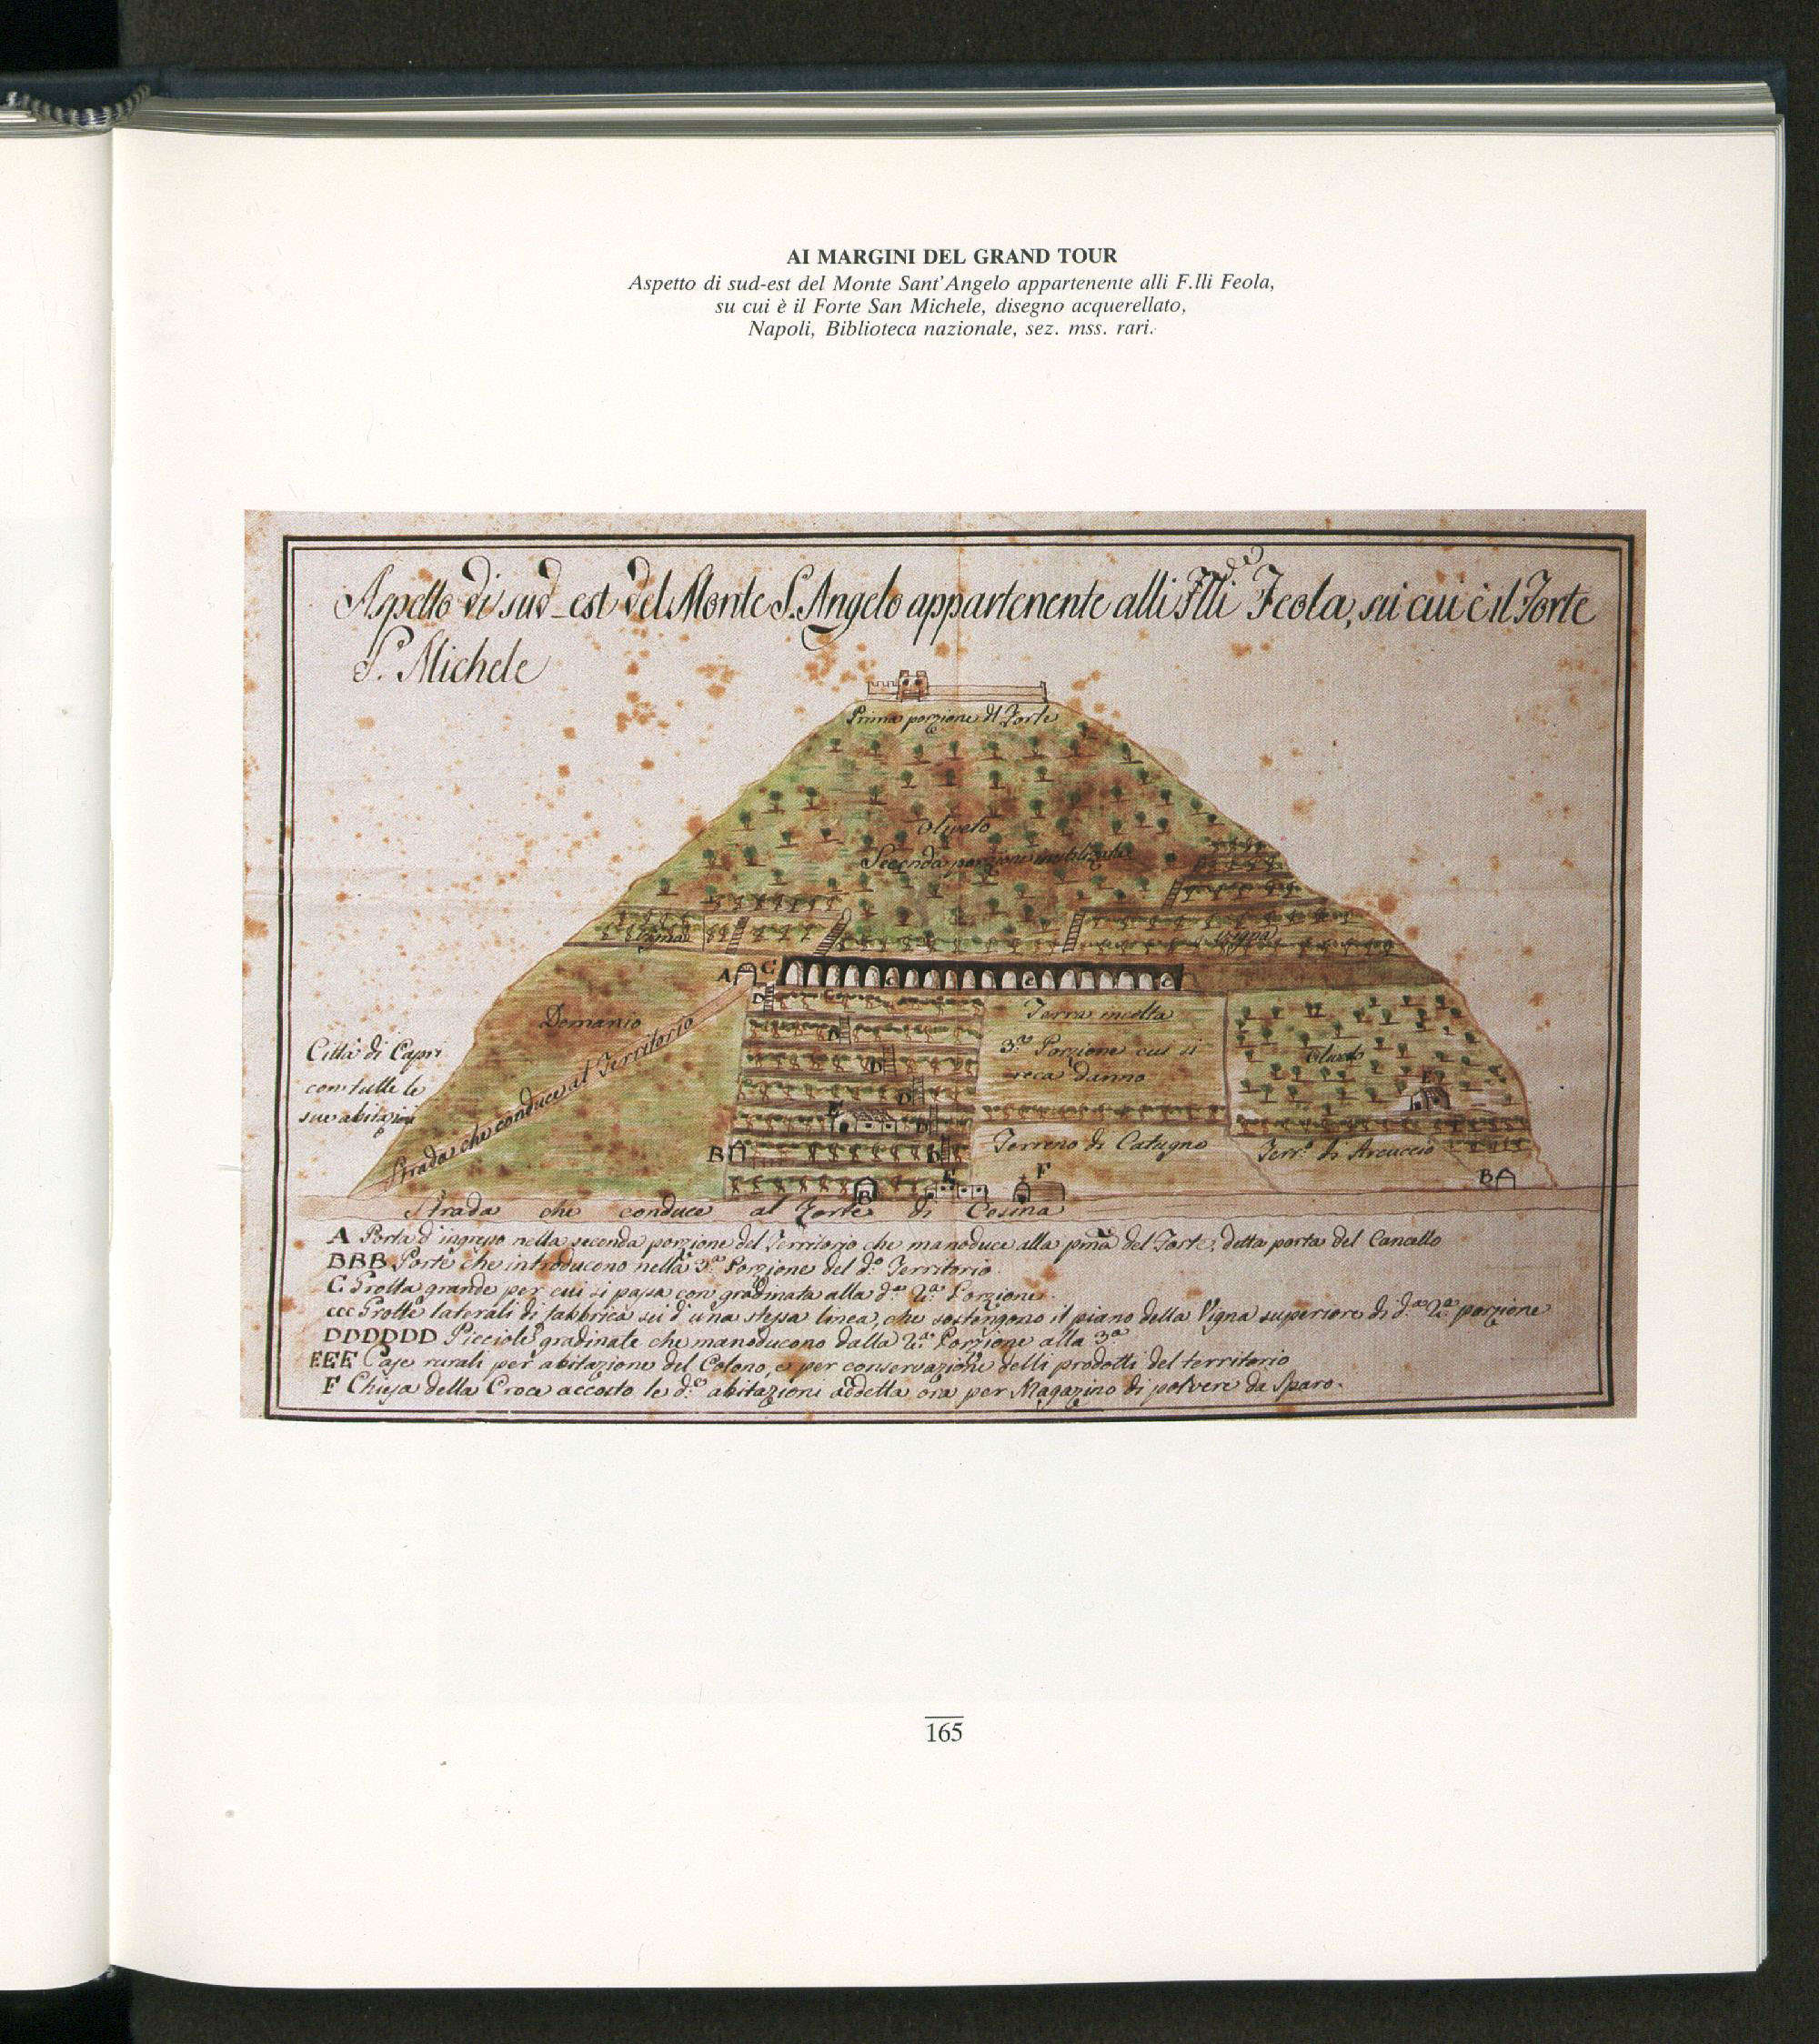 AI MARGINI DEL GRAND TOUR
Aspetto di sud-est del Monte Sant'Angelo appartenente alli F.lli Feola,
su cui è il Forte San Michele, disegno acquerellato,
Napoli, Biblioteca nazionale, sez. mss. rari.
Aspetto di sud-est del Monte S. Angelo appartenente alli Flli Feola, su cui è il Forte
S. Michele
Prima porzione del Forte
Oliveto
Seconda porzione
Vigna
Vigna
A
C
c
c
c
D
Domanio
Terra incolta
D
Città di Capri
con tutte le
sue abitazioni
Strada che conduce al Territorio
3.a Porzione cui si
reca danno
Oliveto
D
D
E
E
D
B
D
Terreno di Catugno
Terr.o di Arcuccio
B
B
E
F
Strada che conduce al Forte di Cesina
A Porta d'ingresso nella seconda porzione del Territorio che manoduce alla pma del Forte, detta porta del Cancello
BBB Porte che introducono nella 3.a Porzione del d.o Territorio
C Grotta grande per cui si passa con gradinata alla d.a 2.a Porzione.
ccc Grotte laterali di fabbrica su d'una stessa linea, che sostengono il piano della Vigna superiore di d.a 2.a porzione
DDDDDD Picciole gradinate che manoducono dalla 2.a Porzione alla 3.a
EEE Case rurali per abitazione del Colono, e per conservazione delli prodotti del territorio
F Chiesa della Croce accosto le d.e abitazioni addetta ora per Magazino di polvere da Sparo.
165